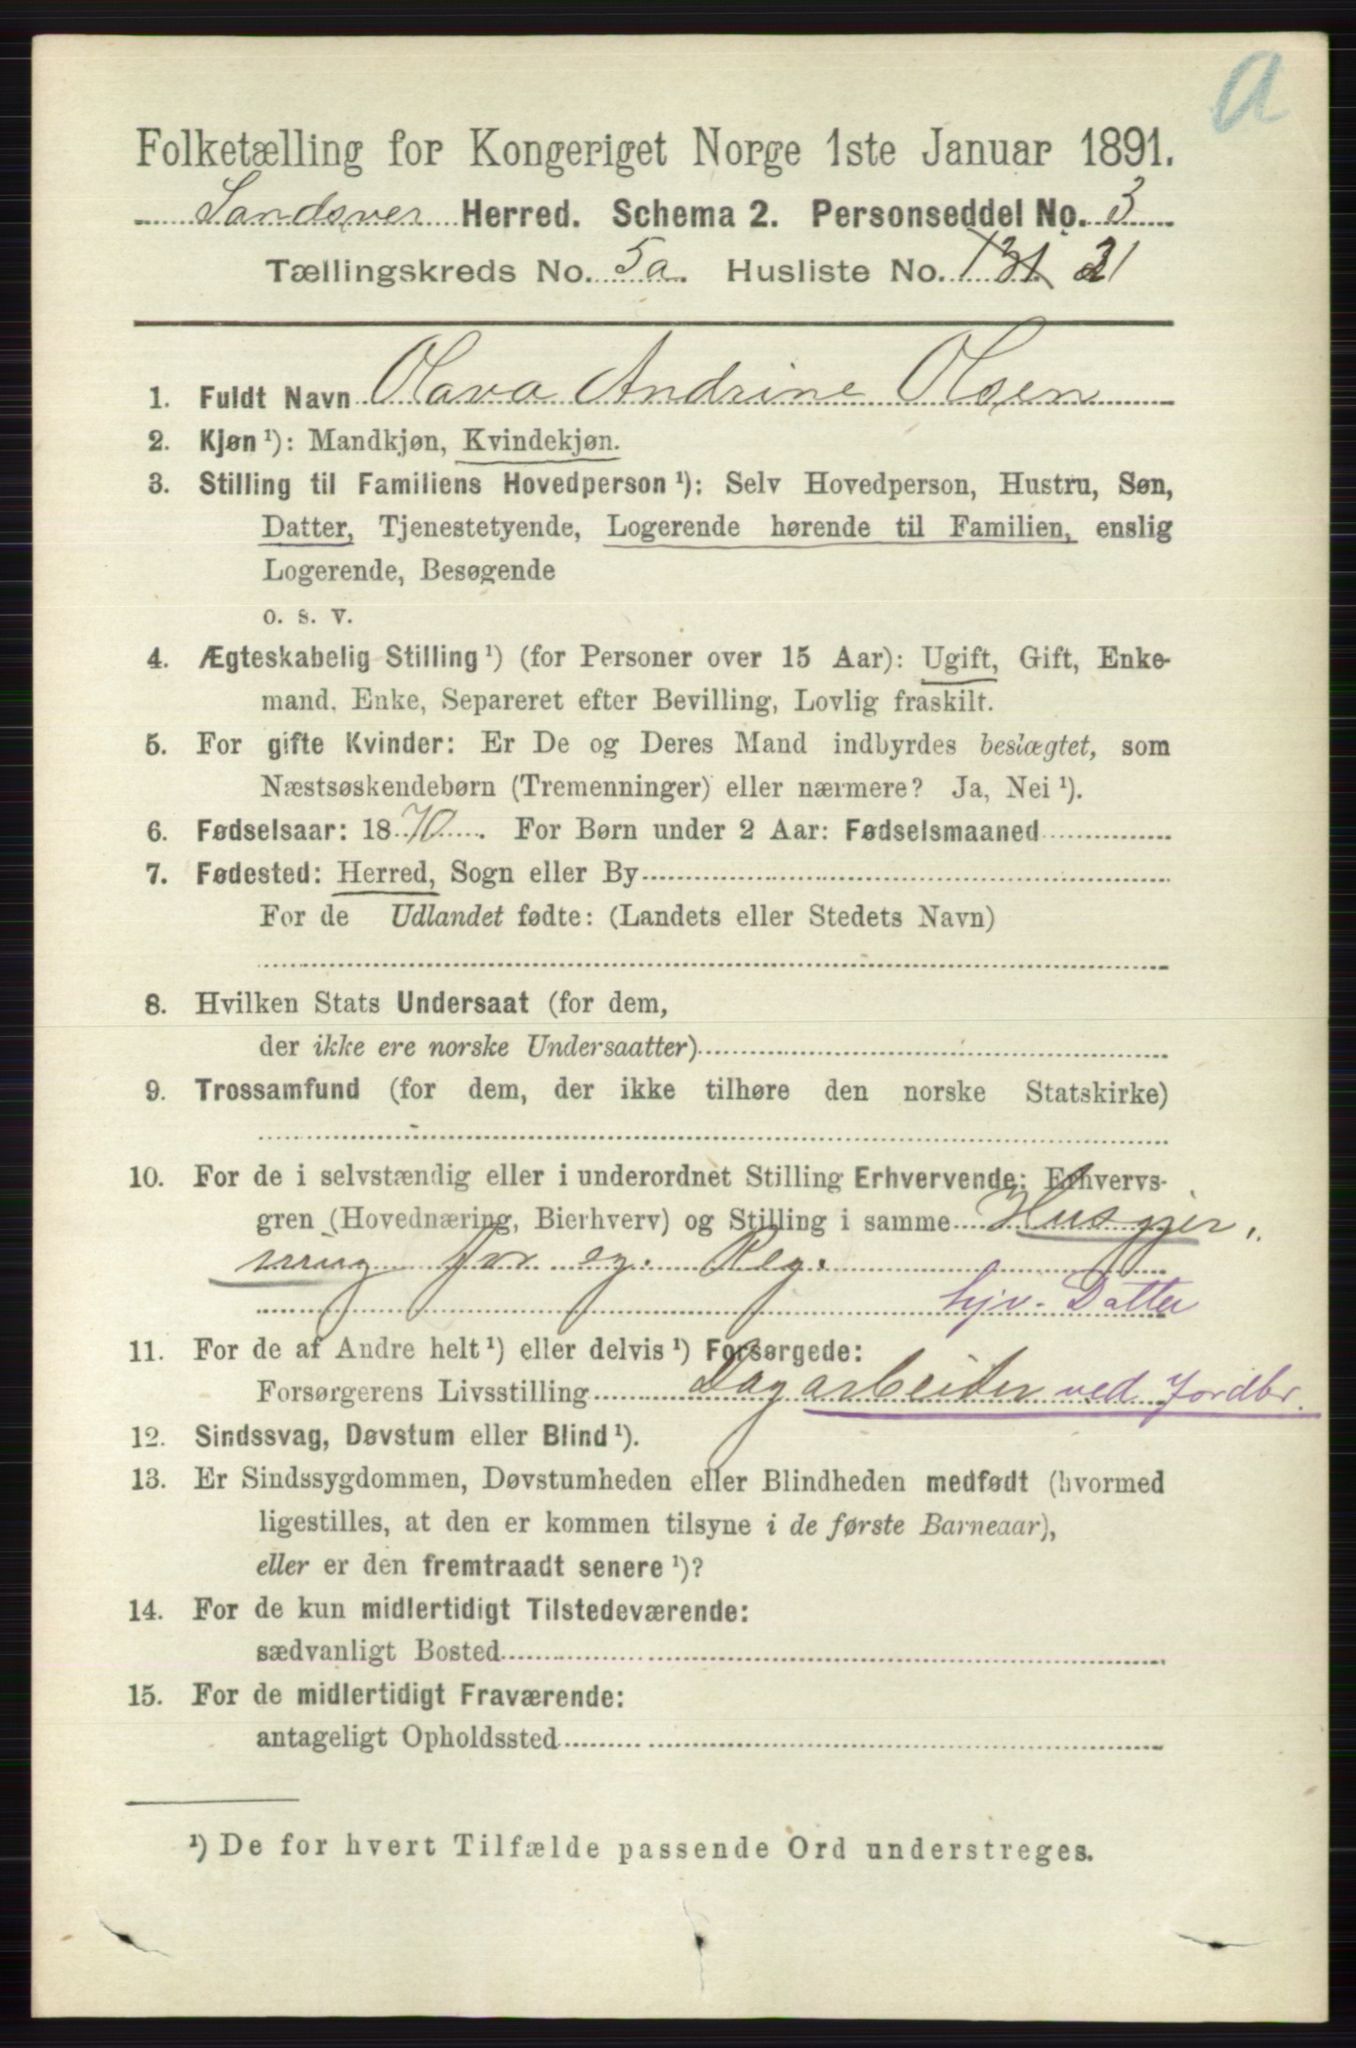 a
Folketælling for Kongeriget Norge 1ste Januar 1891.
Sandsver Herred. Schema 2. Personseddel No. 3
Tællingskreds No. 5a. Husliste No. 131 21
1. Fuldt Navn Olava Andrine Olsen
2. Kjøn ¹): Mandkjøn, Kvindekjøn.
3. Stilling til Familiens Hovedperson ¹): Selv Hovedperson, Hustru, Søn,
Datter, Tjenestetyende, Logerende hørende til Familien, enslig
Logerende, Besøgende
o. s. v.
4. Ægteskabelig Stilling ¹) (for Personer over 15 Aar): Ugift, Gift, Enke-
mand, Enke, Separeret efter Bevilling, Lovlig fraskilt.
5. For gifte Kvinder: Er De og Deres Mand indbyrdes beslægtet, som
Næstsøskendebørn (Tremenninger) eller nærmere? Ja, Nei ¹).
6. Fødselsaar: 1870. For Børn under 2 Aar: Fødselsmaaned
7. Fødested: Herred, Sogn eller By
For de Udlandet fødte: (Landets eller Stedets Navn)
8. Hvilken Stats Undersaat (for dem,
der ikke ere norske Undersaatter)
9. Trossamfund (for dem, der ikke tilhøre den norske Statskirke)
10. For de i selvstændig eller i underordnet Stilling Erhvervende: Erhvervs-
gren (Hovednæring, Bierhverv) og Stilling i samme Husgjer„
ning for eg. Reg.
hjv. Datter
11. For de af Andre helt ¹) eller delvis ¹) Forsørgede:
Forsørgerens Livsstilling Dagarbeider ved Jordbr.
12. Sindssvag, Døvstum eller Blind ¹).
13. Er Sindssygdommen, Døvstumheden eller Blindheden medfødt (hvormed
ligestilles, at den er kommen tilsyne i de første Barneaar),
eller er den fremtraadt senere ¹)?
14. For de kun midlertidigt Tilstedeværende:
sædvanligt Bosted
15. For de midlertidigt Fraværende:
antageligt Opholdssted
¹) De for hvert Tilfælde passende Ord understreges.